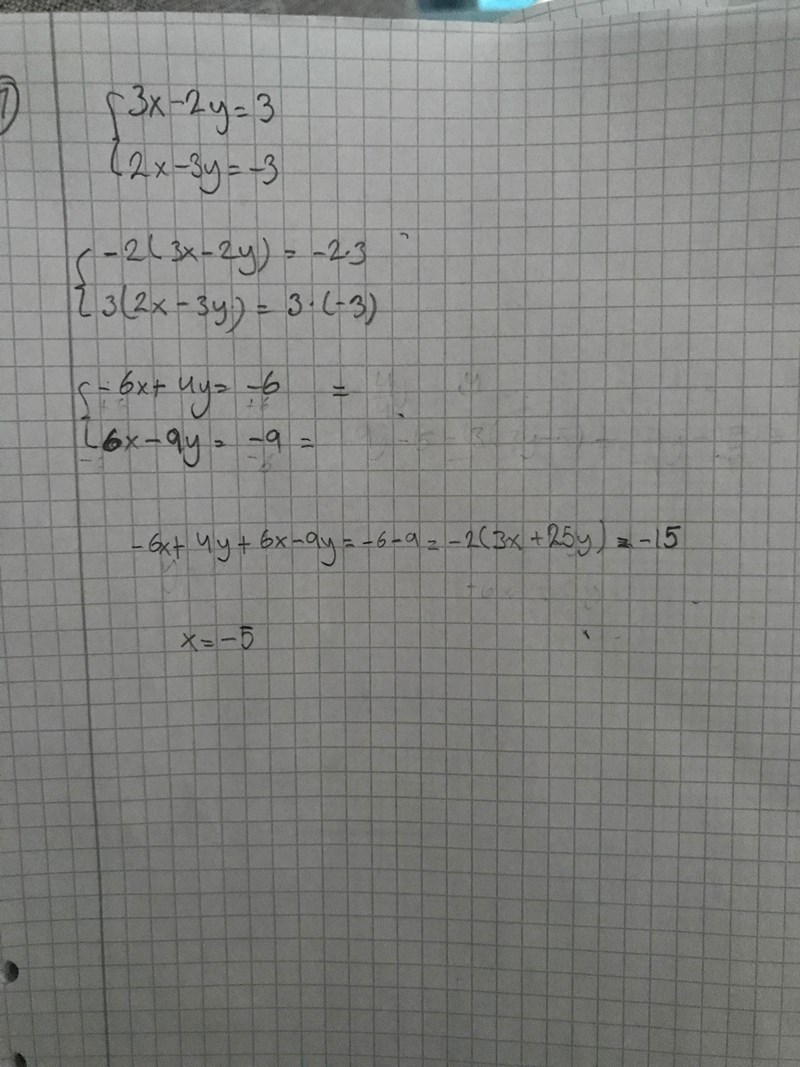 1
3x-2y=3
2x-3y=-3
-2(3x-2y) = -2·3
3(2x-3y) = 3·(-3)
-6x+4y= -6 =
6x-9y= -9 =
-6x+4y+6x-9y=-6-9=-2(3x+25y)=-15
x=-5